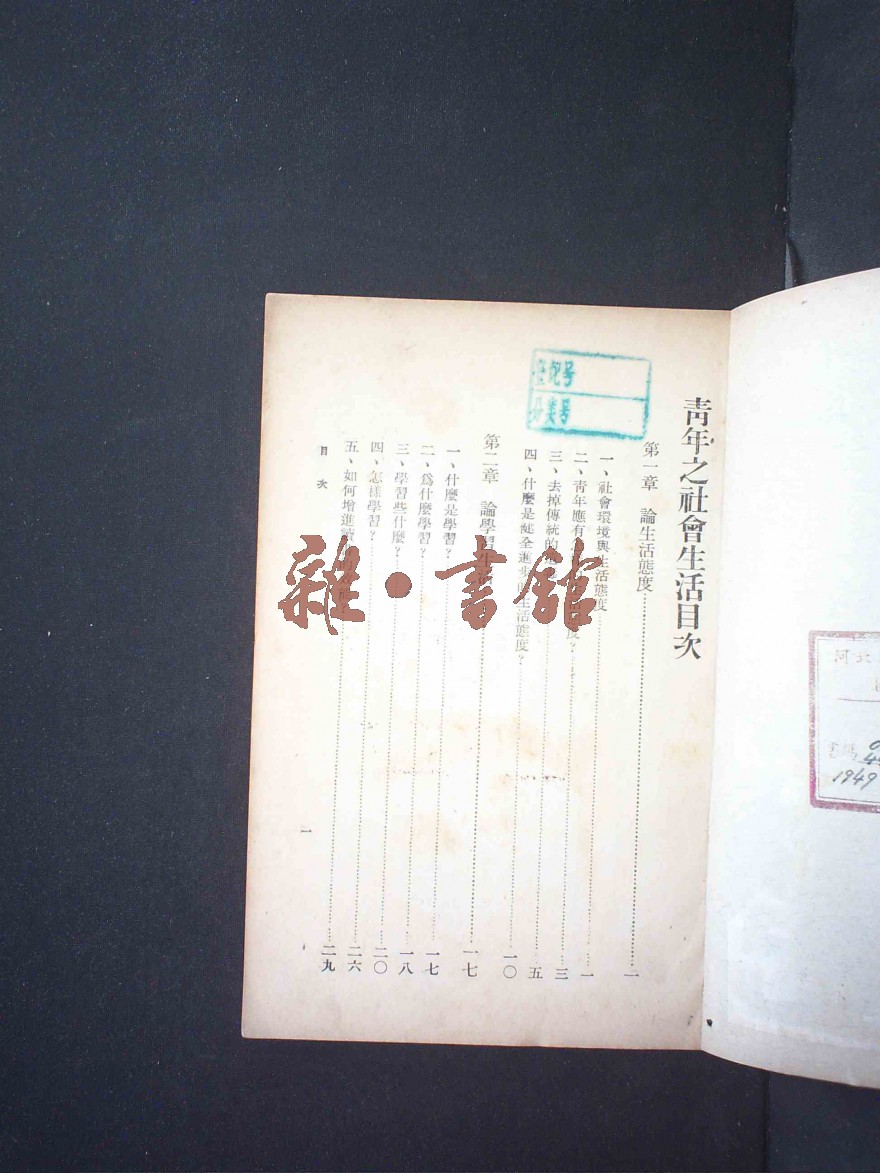 青年之社會生活目次
第一章 論生活態度 一
一、社會環境與生活態度 一
二、青年應有 度? 三
三、去掉傳統的 五
四、什麼是健全進步的生活態度? 一〇
第二章 論學習生活 一七
一、什麼是學習? 一七
二、爲什麼學習? 一八
三、學習些什麼? 二〇
四、怎樣學習? 二六
五、如何增進讀 二九
目次
一
登記号
分类号
雜·書館
河北
書碼
1949